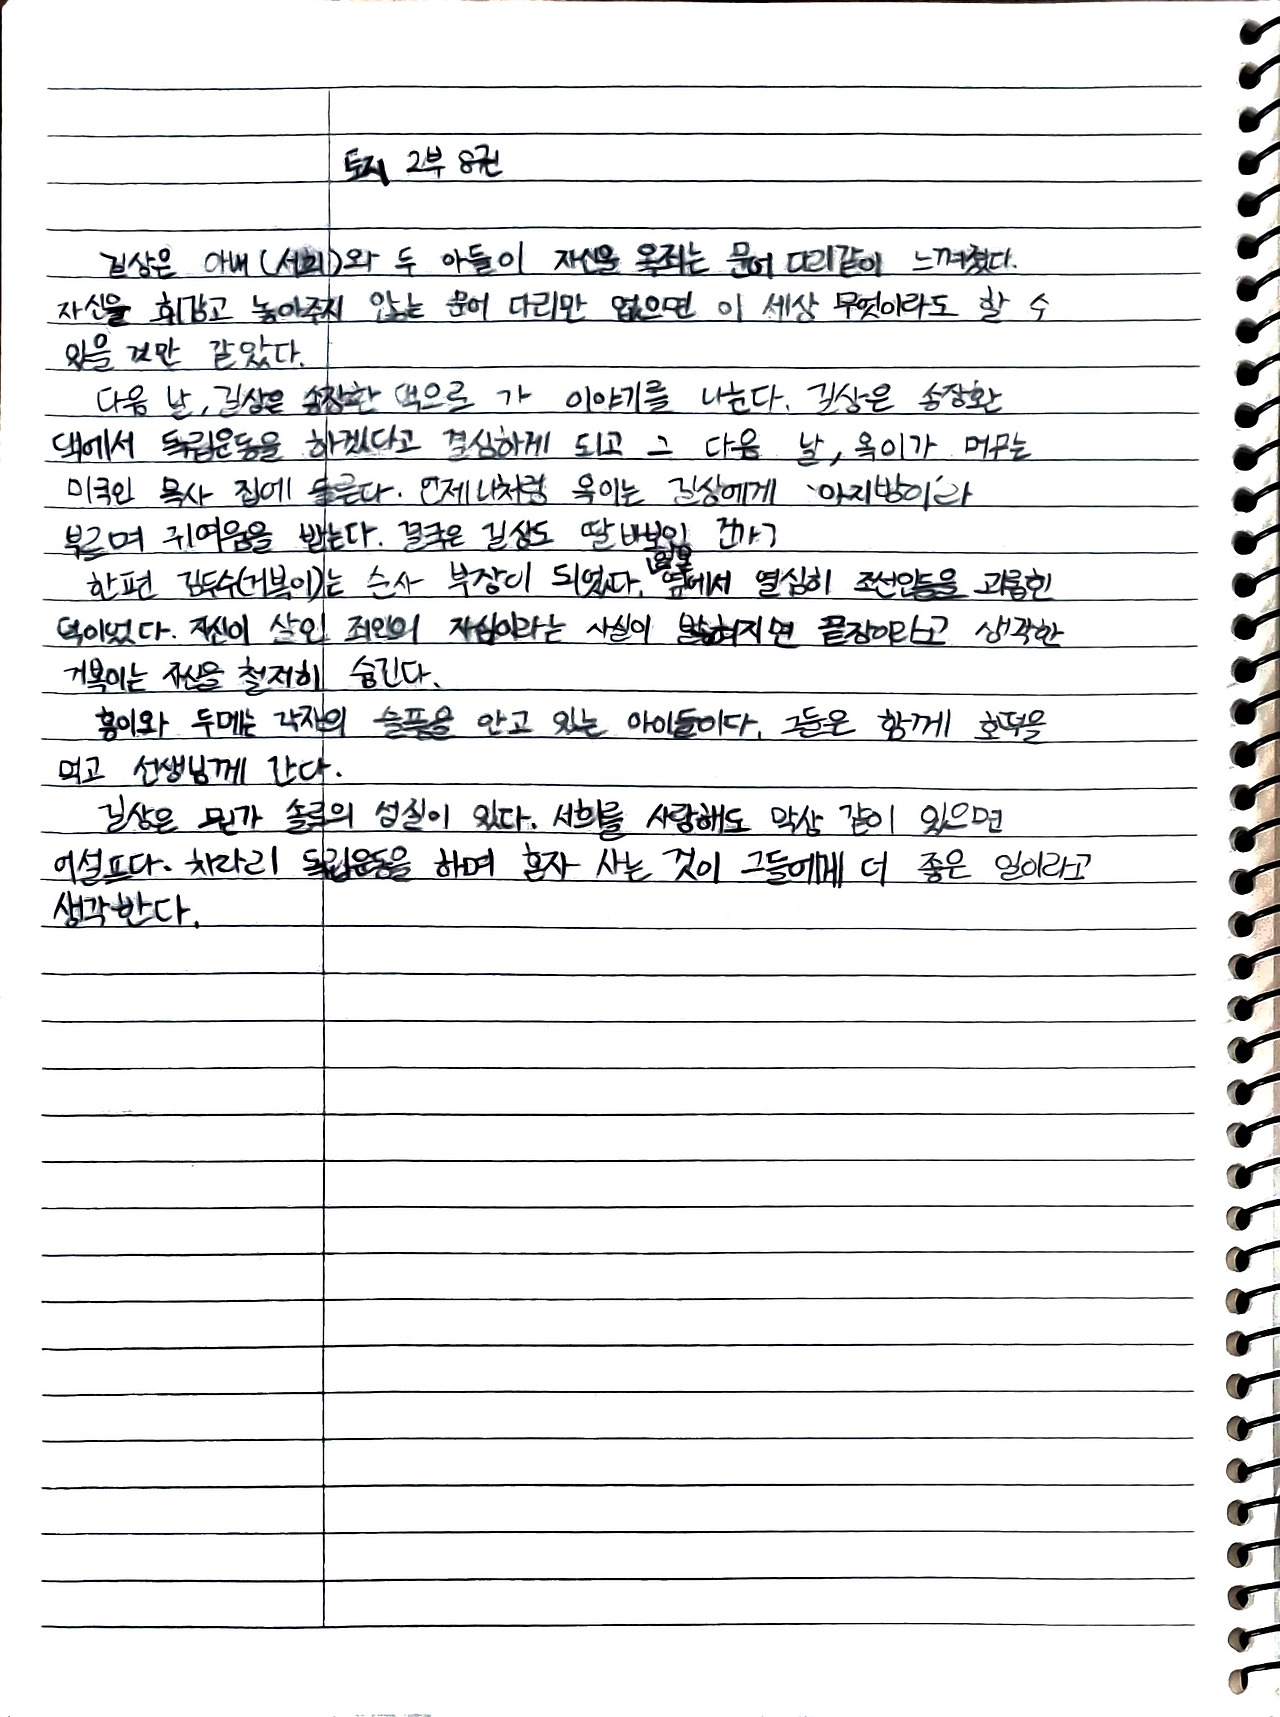 토지 2부 8권
길상은 아내(서희)와 두 아들이 자신을 옥죄는 문어 다리같이 느껴졌다.
자신을 휘감고 놓아주지 않는 문어 다리만 없으면 이 세상 무엇이라도 할 수
있을 것만 같았다.
다음 날, 길상은 송장환 댁으로 가 이야기를 나눈다. 길상은 송장환
댁에서 독립운동을 하겠다고 결심하게 되고 그 다음 날, 옥이가 머무는
미국인 목사 집에 들른다. 언제나처럼 옥이는 길상에게 '아지방이'라
부르며 귀여움을 받는다. 결국은 길상도 딸바보인 건가?
한편 김두수(거복이)는 순사 부장이 되었다. 일본
옆에서 열심히 조선인들을 괴롭힌
덕이었다. 자신이 살인 죄인의 자식이라는 사실이 밝혀지면 끝장이라고 생각한
거복이는 자신을 철저히 숨긴다.
홍이와 두메는 각자의 슬픔을 안고 있는 아이들이다. 그들은 함께 호떡을
먹고 선생님께 간다.
길상은 뭔가 솔로의 성질이 있다. 서희를 사랑해도 막상 같이 있으면
어설프다. 차라리 독립운동을 하며 혼자 사는 것이 그들에게 더 좋은 일이라고
생각한다.